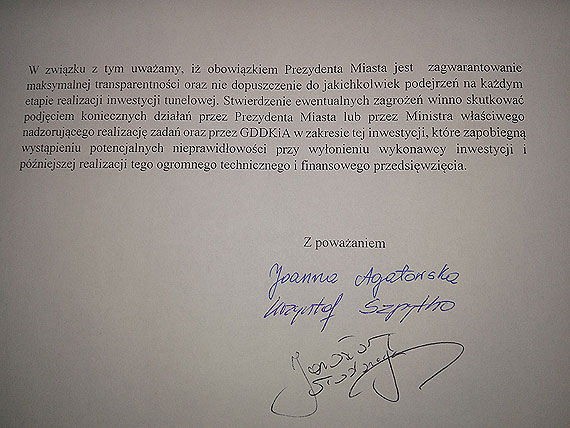 W związku z tym uważamy, iż obowiązkiem Prezydenta Miasta jest zagwarantowanie
maksymalnej transparentności oraz nie dopuszczenie do jakichkolwiek podejrzeń na każdym
etapie realizacji inwestycji tunelowej. Stwierdzenie ewentualnych zagrożeń winno skutkować
podjęciem koniecznych działań przez Prezydenta Miasta lub przez Ministra właściwego
nadzorującego realizację zadań oraz przez GDDKiA w zakresie tej inwestycji, które zapobiegną
wystąpieniu potencjalnych nieprawidłowości przy wyłonieniu wykonawcy inwestycji i
późniejszej realizacji tego ogromnego technicznego i finansowego przedsięwzięcia.
Z poważaniem
Joanna Agatowska
Krzysztof Szpytko